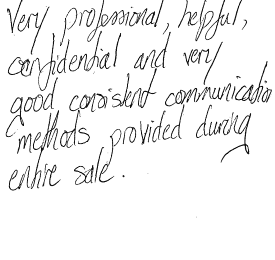 Very professional, helpful,
confidential and very
good consistent communication
methods provided during
entire sale.